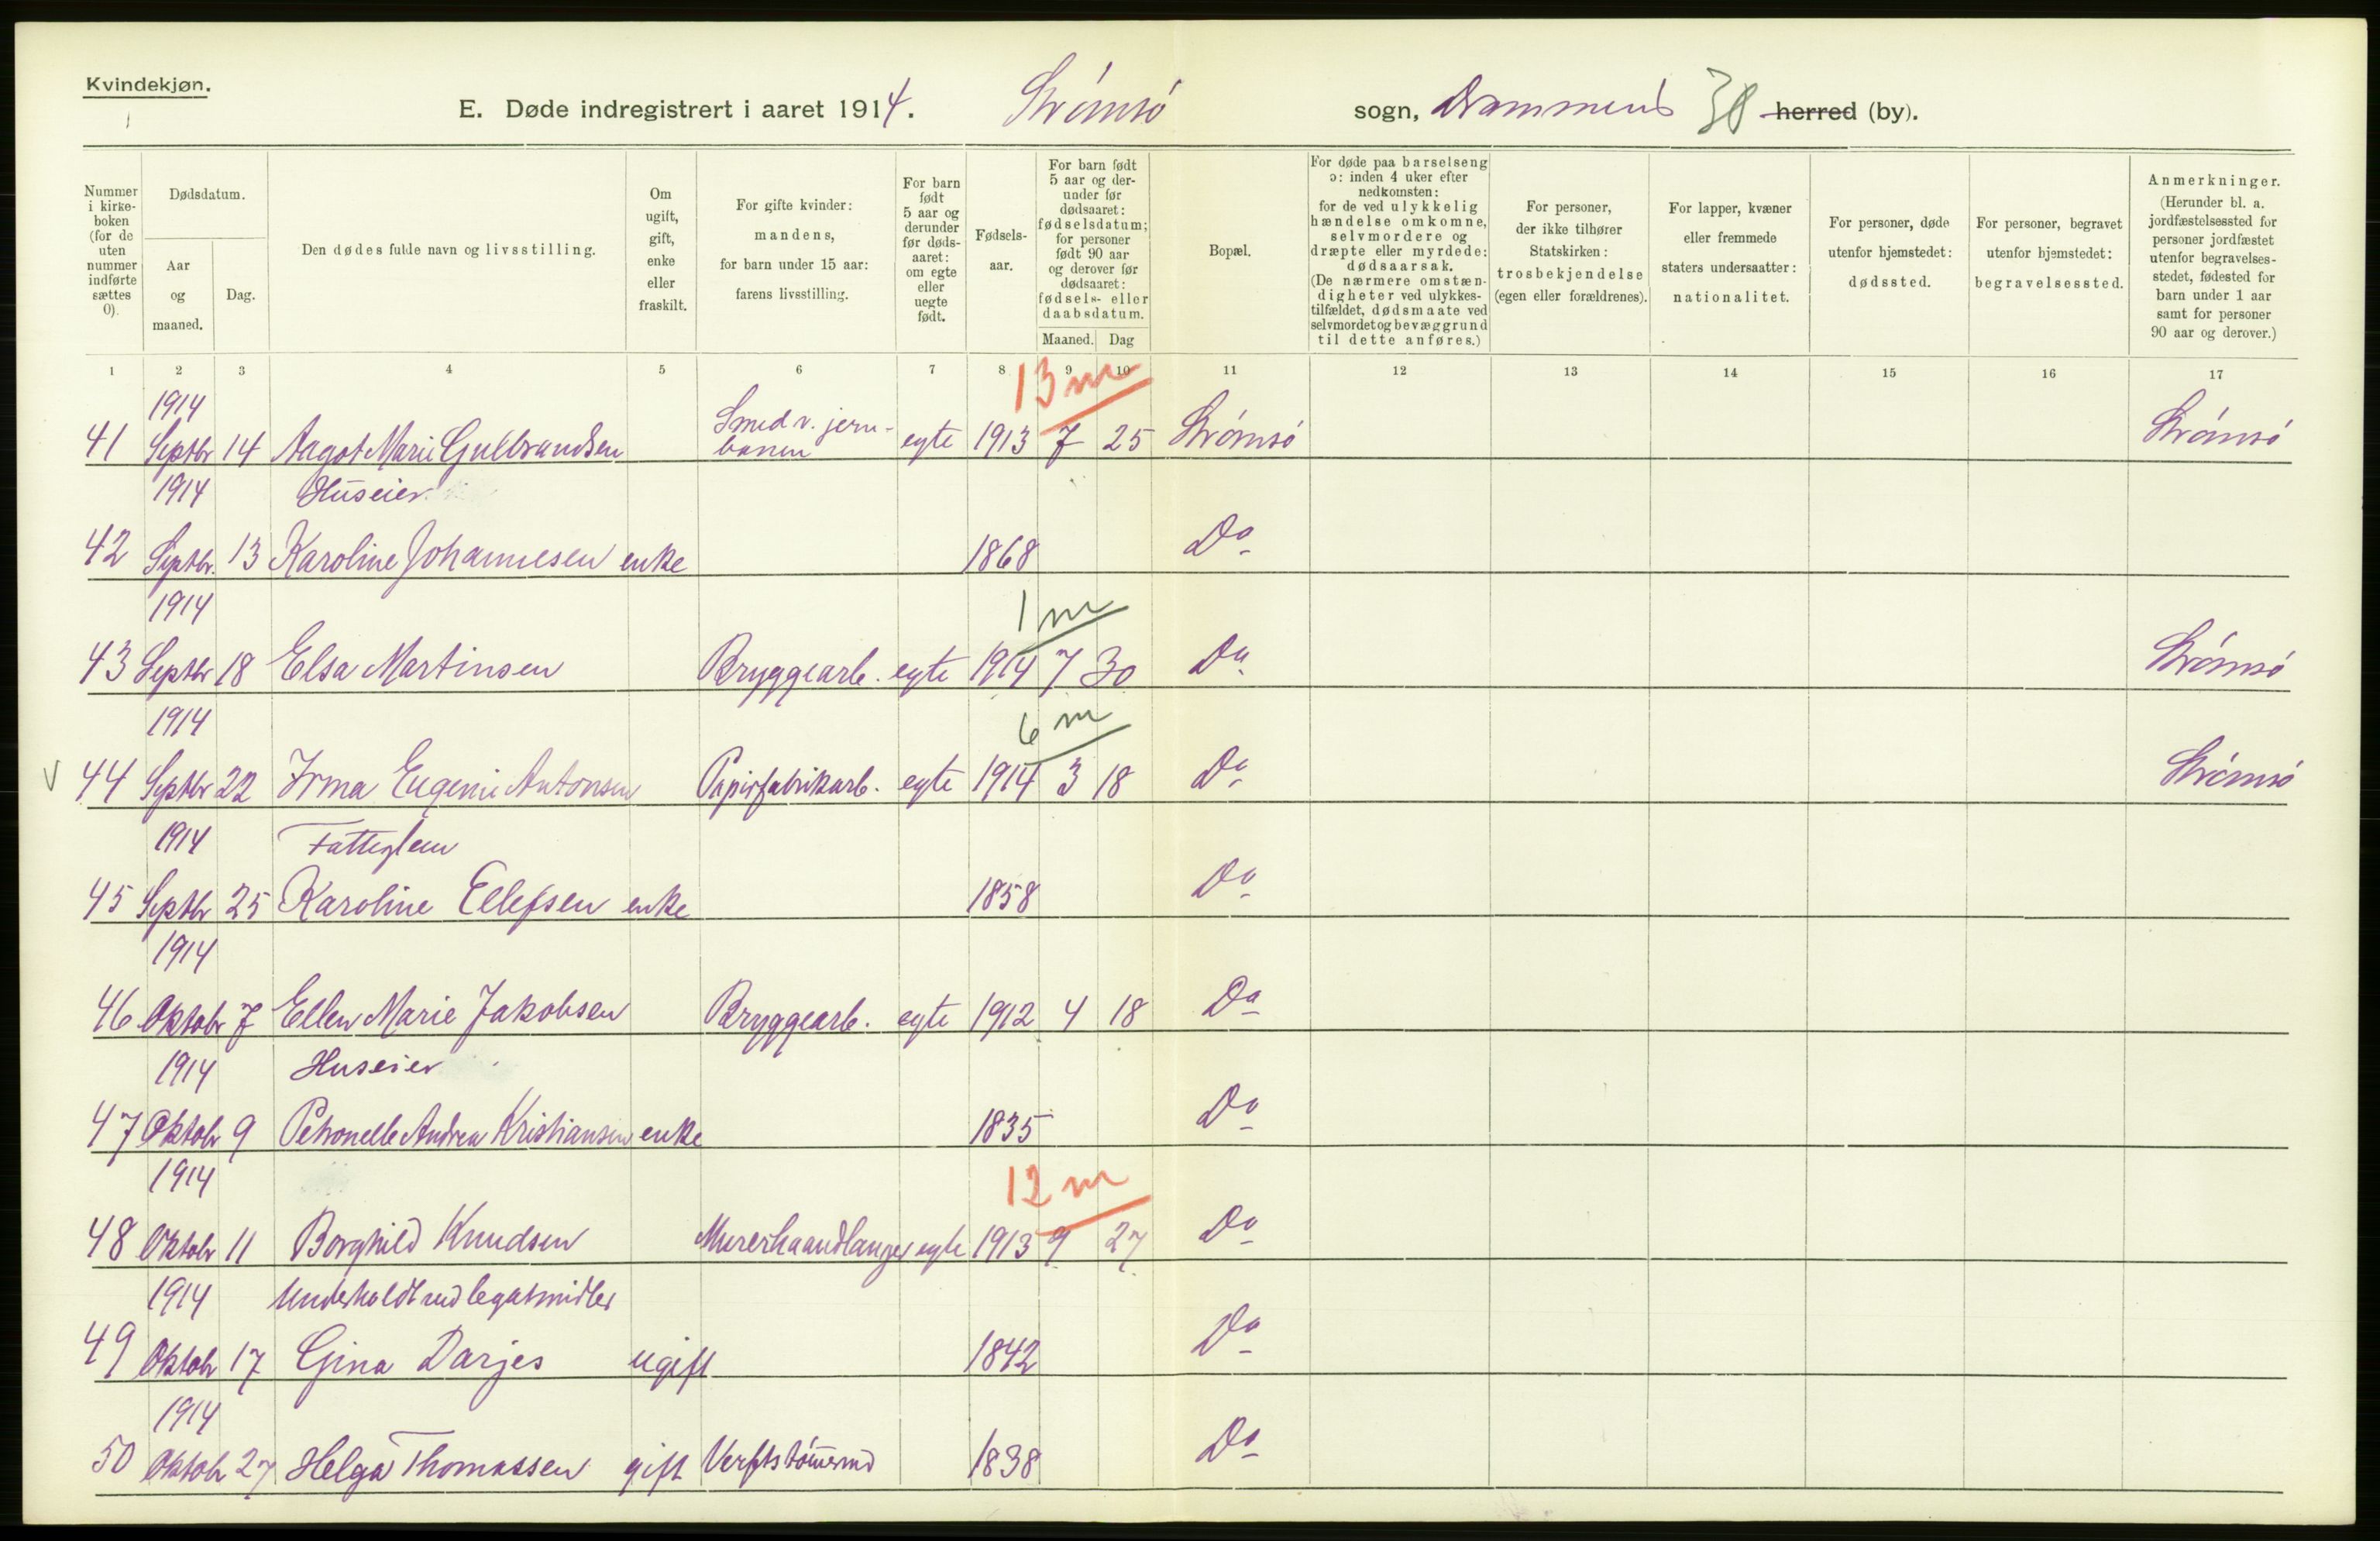 Kvindekjøn.
E. Døde indregistrert i aaret 1914. Strømsø sogn, Drammens 38 herred (by).
Nummer i kirkeboken (for de uten nummer indførte sættes 0).
Dødsdatum.
Aar og maaned.
Dag.
Den dødes fulde navn og livsstilling.
Om ugift, gift, enke eller fraskilt.
For gifte kvinder: mandens, for barn under 15 aar: farens livsstilling.
For barn født 5 aar og derunder før dødsaaret: om egte eller uegte født.
Fødselsaar.
For barn født 5 aar og derunder før dødsaaret: fødselsdatum; for personer født 90 aar og derover før dødsaaret: fødsels- eller daabsdatum.
Maaned. Dag
Bopæl.
For døde paa barselseng ɔ: inden 4 uker efter nedkomsten; for de ved ulykkelig hændelse omkomne, selvmordere og dræpte eller myrdede: dødsaarsak. (De nærmere omstændigheter ved ulykkestilfældet, dødsmaate ved selvmordet og bevæggrund til dette anføres.)
For personer, der ikke tilhører Statskirken: trosbekjendelse (egen eller forældrenes).
For lapper, kvæner eller fremmede staters undersaatter: nationalitet.
For personer, døde utenfor hjemstedet: dødssted.
For personer, begravet utenfor hjemstedet: begravelsessted.
Anmerkninger. (Herunder bl. a. jordfæstelsessted for personer jordfæstet utenfor begravelsesstedet, fødested for barn under 1 aar samt for personer 90 aar og derover.)
1 2 3 4 5 6 7 8 9 10 11 12 13 14 15 16 17
1914 13 m
41 Septbr 14 Aagot Marie Gulbrandsen Smed v. jernbanen egte 1913 7 25 Strømsø Strømsø
1914 Huseier
42 Septbr. 13 Karoline Johannesen enke 1868 Do
1914 1 m
43 Septbr 18 Elsa Martinsen Bryggearb. egte 1914 7 30 Do Strømsø
1914 6 m
V 44 Septbr 22 Irma Eugenie Antonsen Papirfabrikarb. egte 1914 3 18 Do Strømsø
1914 Fattiglem
45 Septbr 25 Karoline Ellefsen enke 1858 Do
1914
46 Oktobr 7 Ellen Marie Jakobsen Bryggearb. egte 1912 4 18 Do
1914 Huseier
47 Oktobr 9 Petronelle Andrea Kristiansen enke 1835 Do
1914 12 m
48 Oktobr 11 Borghild Knudsen Murerhaandlanger egte 1913 9 27 Do
1914 Underholdt ved legatmidler
49 Oktobr 17 Gina Darjes ugift 1842 Do
1914
50 Oktobr 27 Helga Thomassen gift Verftstømmermd 1838 Do